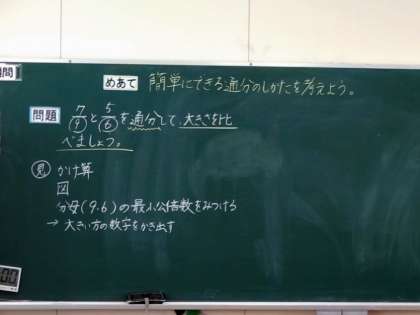 めあて 簡単にできる通分のしかたを考えよう。
問題 7/9と5/6を通分して、大きさを比
べましょう。
見 かけ算
図
分母(9.6)の最小公倍数をみつける
→ 大きい方の数字をかき出す